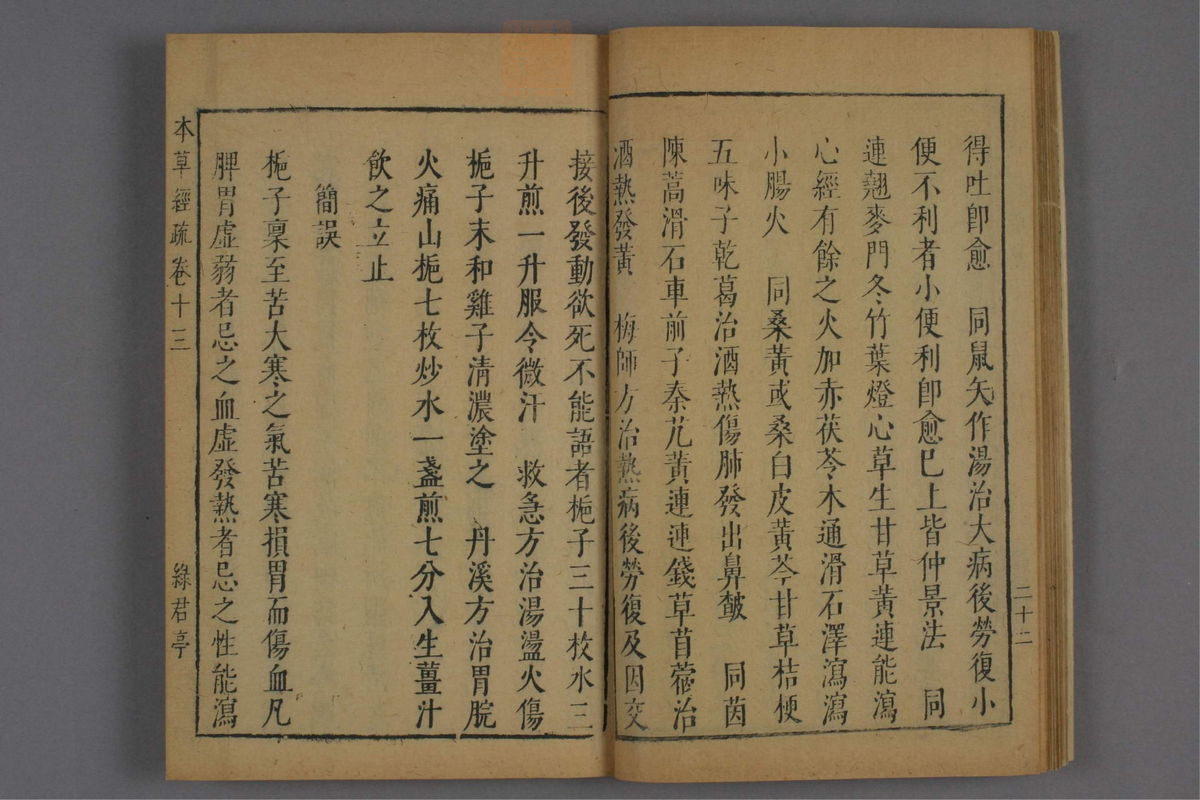 得吐卽愈　同鼠矢作湯治大病後勞復小
便不利者小便利卽愈巳上皆仲景法　同
連翹麥門冬竹葉燈心草生甘草黃連能瀉
心經有餘之火加赤茯苓木通滑石澤瀉瀉
小腸火　同桑黃或桑白皮黃芩甘草桔梗
五味子乾葛治酒熱傷肺發出鼻皶　同茵
陳蒿滑石車前子秦艽黃連連錢草苜蓿治
酒熱發黃　梅師方治熱病後勞復及因交
二十二
接後發動欲死不能語者梔子三十枚水三
升煎一升服令微汗　救急方治湯盪火傷
梔子末和雞子清濃塗之　丹溪方治胃脘
火痛山梔七枚炒水一盞煎七分入生薑汁
飲之立止
簡誤
梔子稟至苦大寒之氣苦寒損胃而傷血凡
脾胃虛弱者忌之血虛發熱者忌之性能瀉
本草經疏卷十三
綠君亭